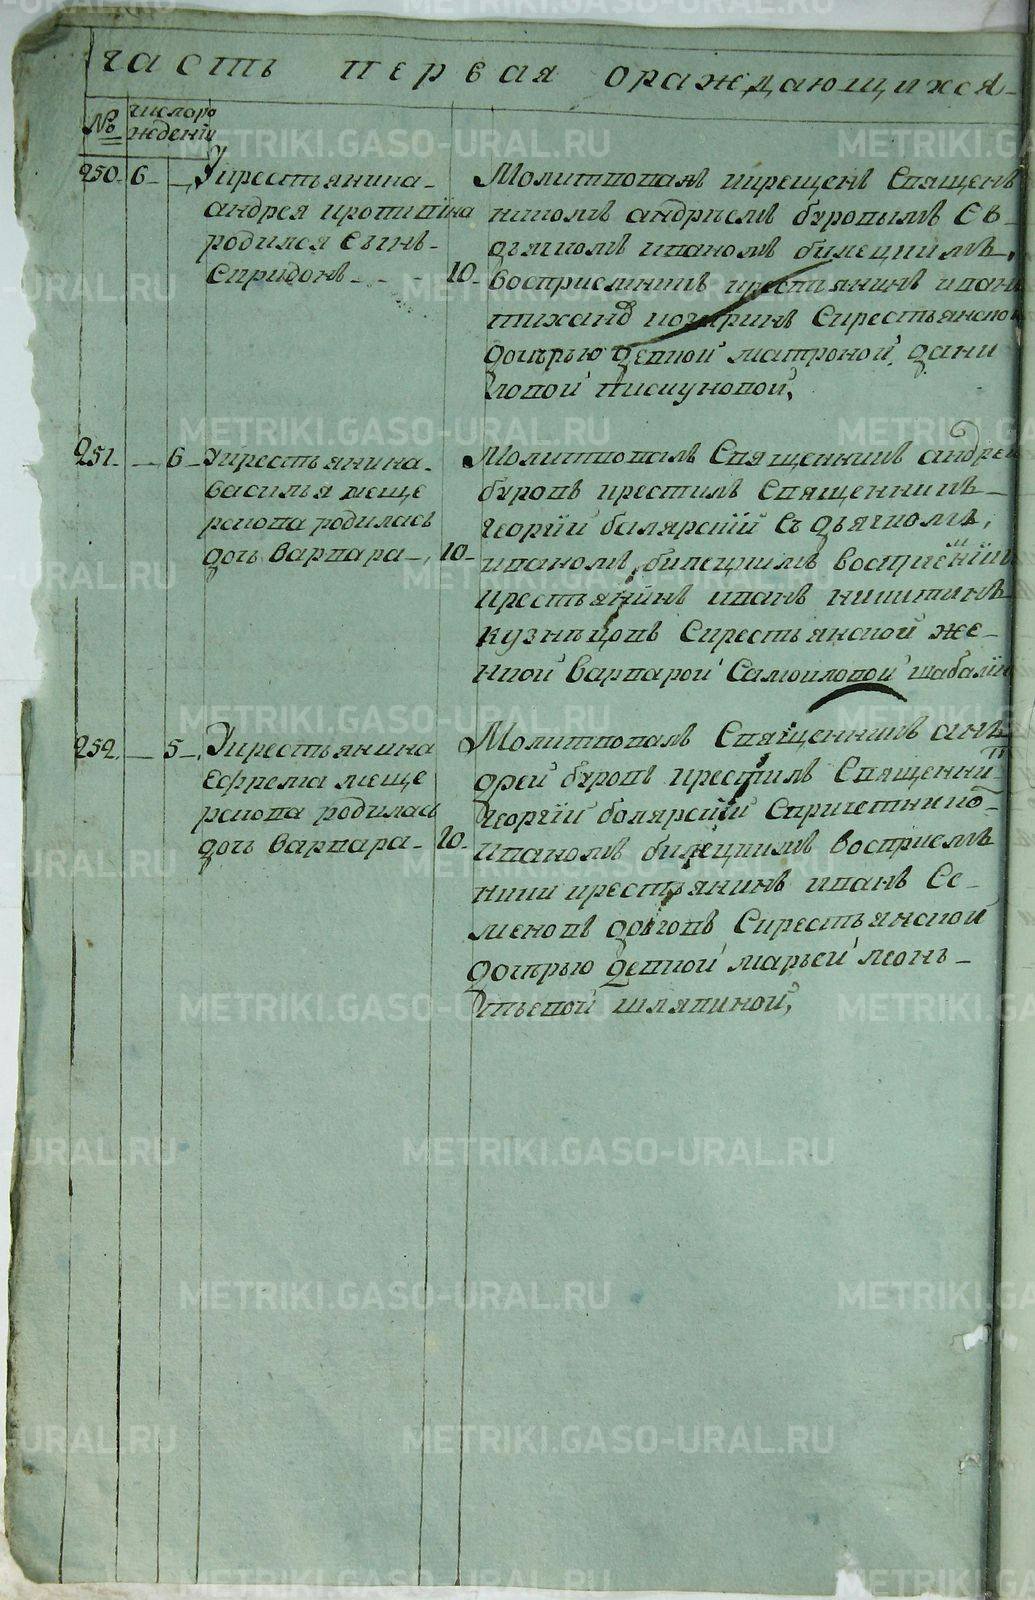 часть первая ораждающихся
№ числоро
ждений
250. 6 — Укрестьянина
андрея
родился сынъ
спридонъ — 10
Молитвовалъ икрещенъ священ
никомъ андреемъ буровымъ съ
дьячкомъ иваномъ билецкимъ,
восприемникъ крестьянинъ иван
скрестьянско
дочерью девкой матроной дани
ловой пискуновой,
251. — 6 — Укрестьянина
василья меще
рякова родилась
дочь варвара — 10
Молитвовалъ священникъ андрей
буровъ крестилъ священникъ
георгий болярский съ дьячкомъ,
иваномъ билецкимъ
крестьянинъ иванъ никитинъ
кузнецовъ скрестьянской же-
нкой варварой самойловой шабалин
252. — 5 — Укрестьянина
ефрема меще
рякова родилась
дочь варвара — 10
Молитвовалъ священникъ ан
дрей буровъ крестилъ священни
георгий болярский
иваномъ билецкимъ восприем
ники крестьянинъ иванъ се
меновъ скрестьянской
дочерью девкой марьей леонь-
тьевой шляпиной,
METRIKI.GASO-URAL.RU